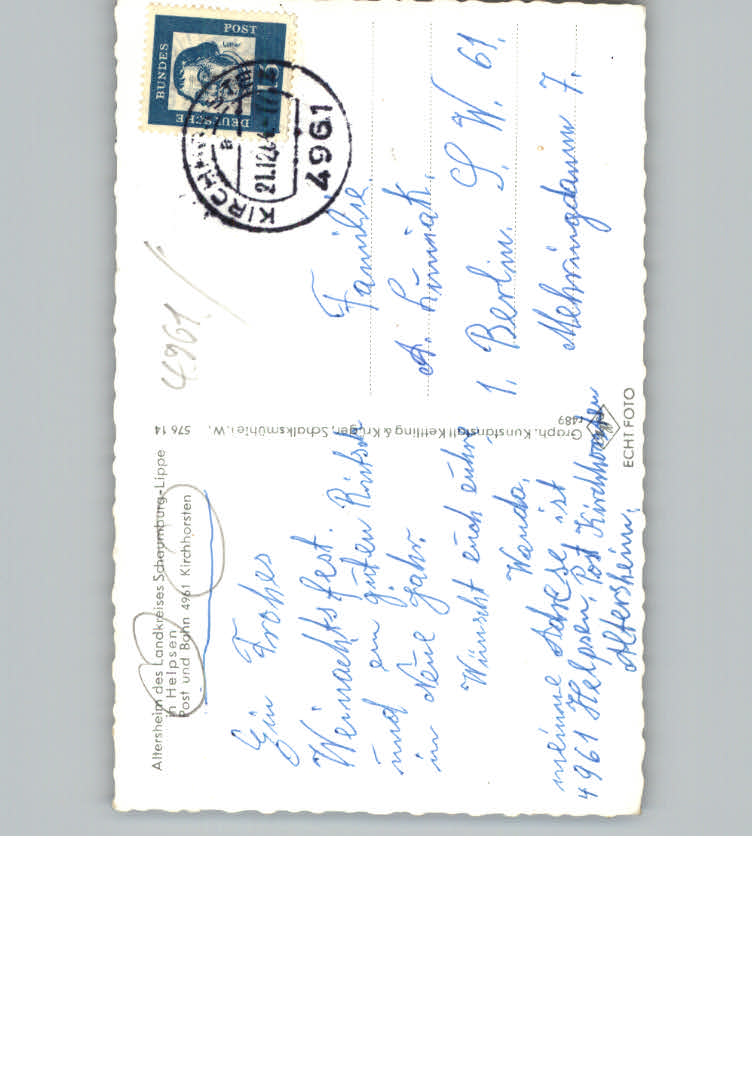 Altersheim des Landkreises Schaumburg-Lippe
in Helpsen
Post und Bahn 4961 Kirchhorsten
Ein Frohes
Weinachtsfest.
und ein guten Rüutsch
in Neue Jahr.
Wünscht euch euhre
Wanda.
meine Adrese ist
4961 Helpsen, Post Kirchhorsten
Altersheim.
576 14
Graph. Kunstanstalt Kettling & Krüger, Schalksmühle i. W.
r489
ECHT FOTO
4961
DEUTSCHE
BUNDES
POST
Luther
15
KIRCHHORSTEN
a
21.12.64-17
4961
Familie
A.
1. Berlin. S. W. 61.
Mehringdamm 7.